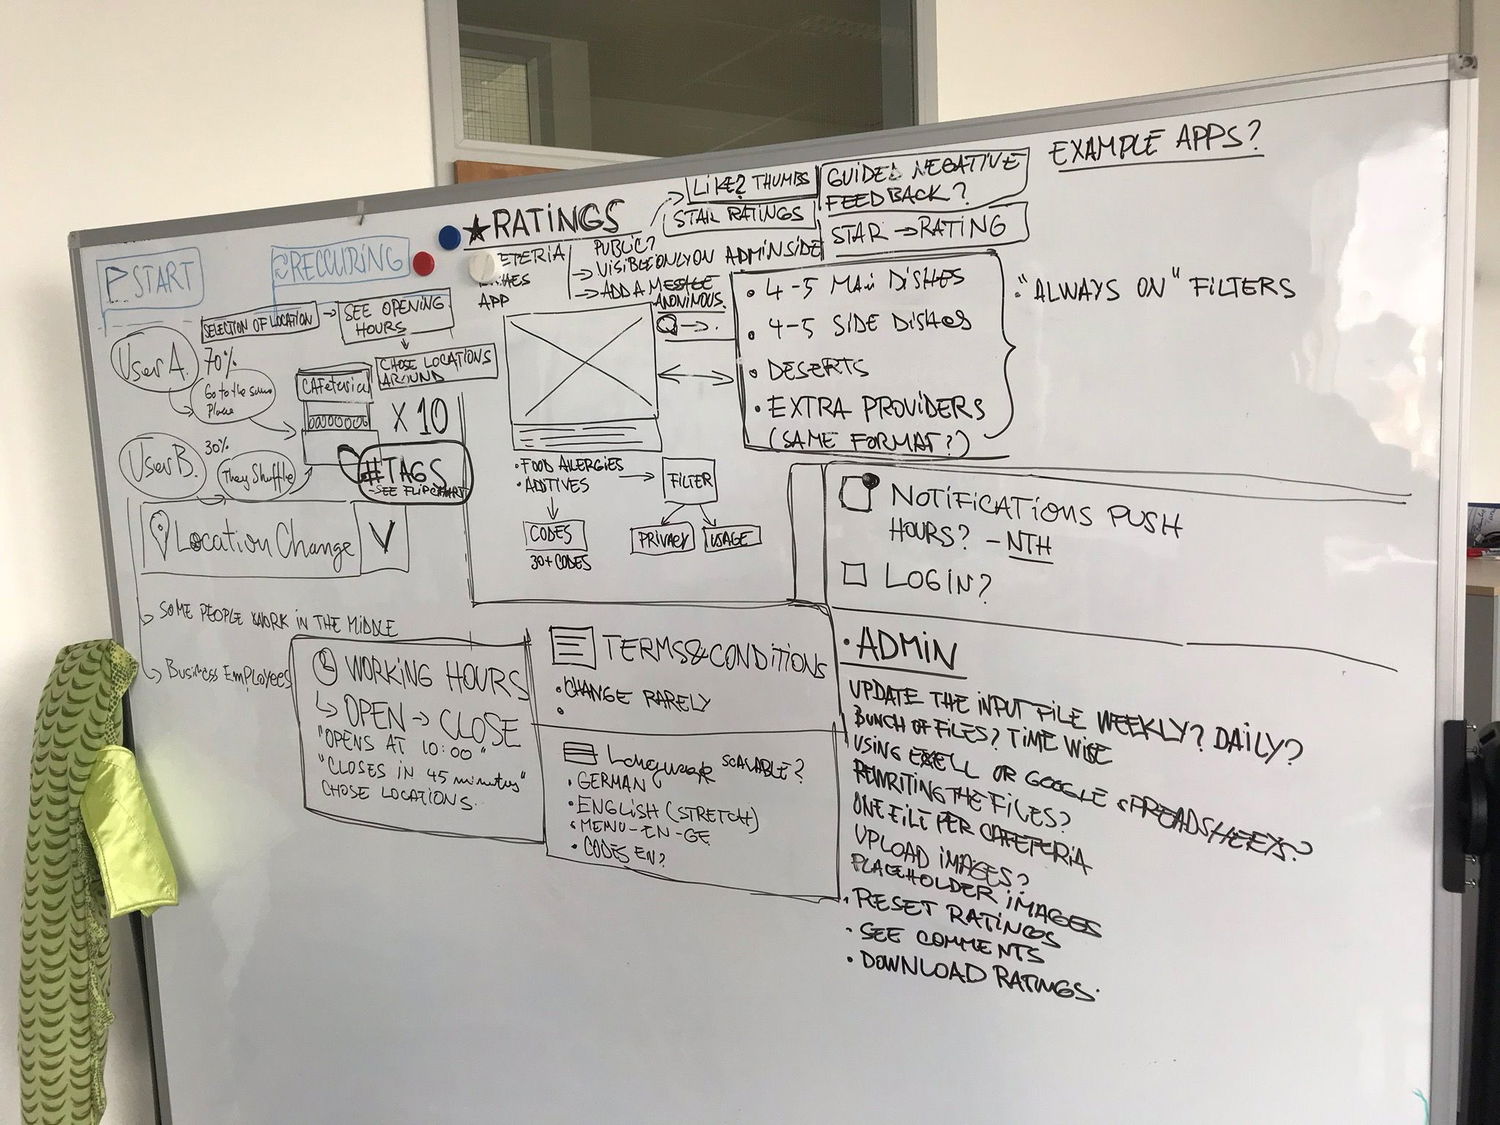 START
RECCURING
★RATINGS
LIKE? THUMBS
STAR RATINGS
GUIDED NEGATIVE
FEEDBACK?
STAR → RATING
EXAMPLE APPS?
ETERIA
HES
APP
PUBLIC?
→ VISIBLE ONLY ON ADMIN SIDE
→ ADD A MESSGE
ANONIMOUS.
SELECTION OF LOCATION
→ SEE OPENING
HOURS
CHOSE LOCATIONS
AROUND
User A.
70%
Go to the same
Place
CAFeteria
X 10
User B.
30%
They Shuffle
#TAGS
-SEE FLIPCHART
Location Change
V
SOME PEOPLE WORK IN THE MIDDLE
Business Employees
• FOOD ALERGIES
• ADITIVES
→ FILTER
CODES
30+ CODES
PRIVACY
USAGE
• 4-5 MAIN DISHES
• 4-5 SIDE DISHES
• DESERTS
• EXTRA PROVIDERS
(SAME FORMAT?)
• "ALWAYS ON" FILTERS
NOTIFICATIONS PUSH
HOURS? - NTH
LOGIN?
WORKING HOURS
↳ OPEN → CLOSE
"OPENS AT 10:00"
"CLOSES IN 45 minutes"
CHOSE LOCATIONS.
TERMS&CONDITIONS
• CHANGE RARELY
•
Language SCALABLE?
• GERMAN
• ENGLISH (STRETCH)
• MENU-EN-GE
• CODES EN?
• ADMIN
UPDATE THE INPUT FILE WEEKLY? DAILY?
BUNCH OF FILES? TIME WISE
USING EXELL OR GOOGLE SPREADSHEETS?
REWRITING THE FILES?
ONE FILE PER CAFETERIA
UPLOAD IMAGES?
PLACEHOLDER IMAGES
• RESET RATINGS
• SEE COMMENTS
• DOWNLOAD RATINGS.